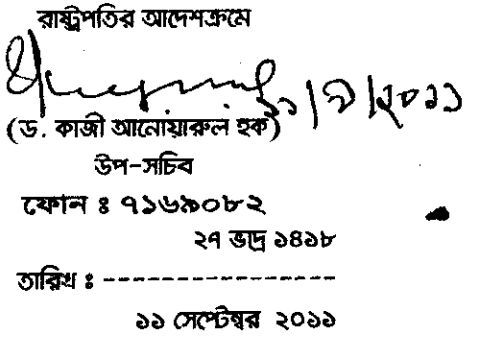 রাষ্ট্রপতির আদেশক্রমে
১১/৯/২০১১
(ড. কাজী আনোয়ারুল হক)
উপ-সচিব
ফোন ঃ ৭১৬৯০৮২
২৭ ভাদ্র ১৪১৮
তারিখ ঃ -----------------
১১ সেপ্টেম্বর ২০১১